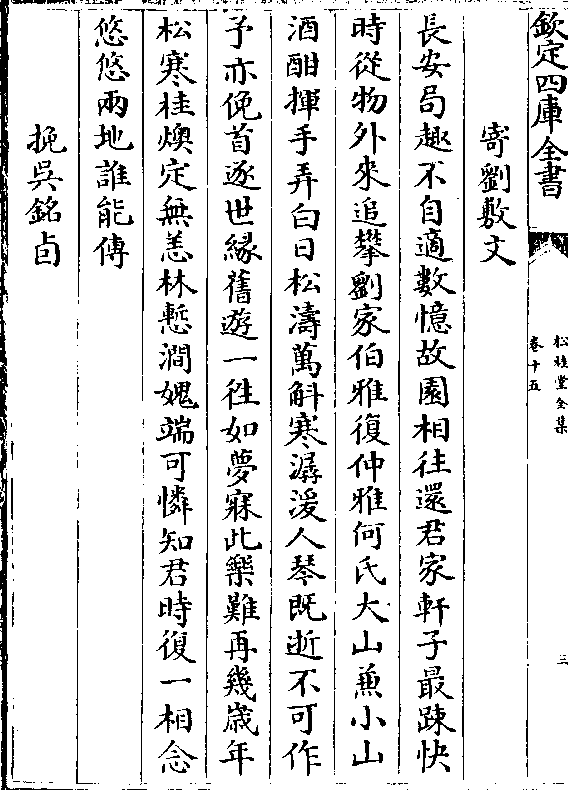 欽定四庫全書
松桂堂全集
卷十五
三
寄劉敷文
長安局趣不自適數憶故園相往還君家軒子最踈快
時從物外來追攀劉家伯雅復仲雅何氏大山兼小山
酒酣揮手弄白日松濤萬斛寒潺湲人琴既逝不可作
予亦俛首逐世緣舊遊一徃如夢寐此樂難再幾歲年
松寒桂燠定無恙林慙澗媿端可憐知君時復一相念
悠悠兩地誰能傳
挽吳銘卣